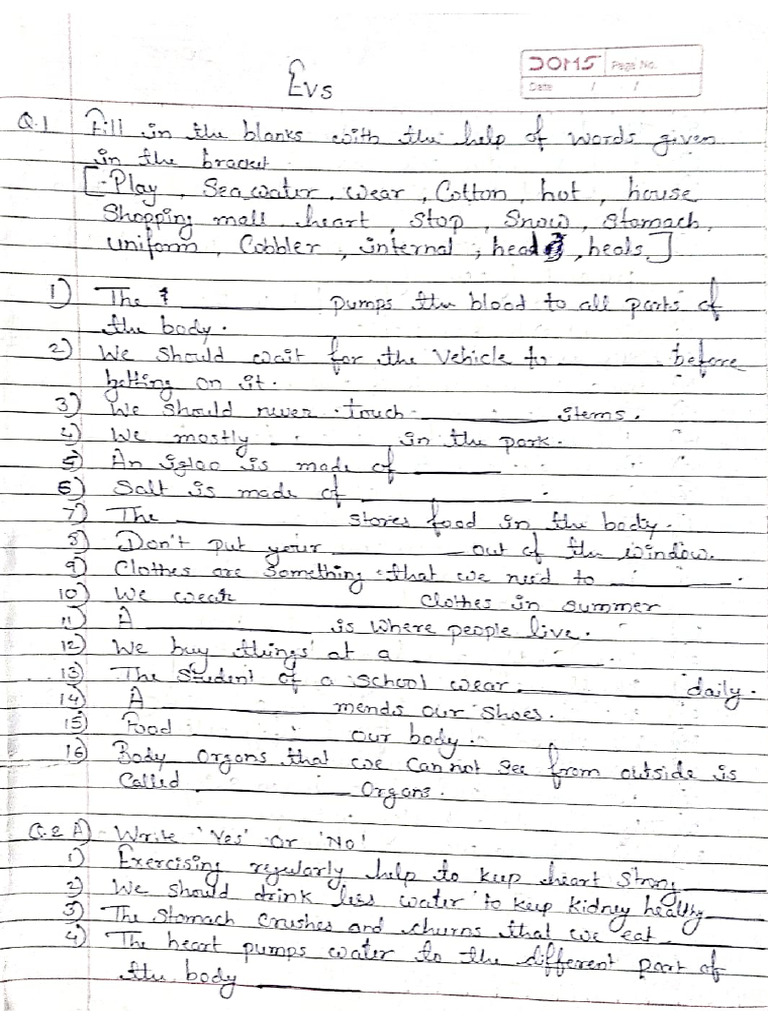 DOMS Page No.
Date / /
Evs
Q.1 Fill in the blanks with the help of words given
in the bracket
[-Play, Sea water, wear, Cotton, hot, house
Shopping mall, heart, stop, Snow, stomach,
uniform, Cobbler, internal, head, heals]
1) The _______ pumps the blood to all parts of
the body.
2) We should wait for the vehicle to _______ before
getting on it.
3) We should never touch _______ items.
4) We mostly _______ in the park.
5) An igloo is made of _______
6) Salt is made of _______.
7) The _______ stores food in the body.
8) Don't put your _______ out of the window.
9) Clothes are something that we need to _______.
10) We wear _______ clothes in summer
11) A _______ is where people live.
12) We buy things at a _______.
13) The student of a school wear _______ daily.
14) A _______ mends our shoes.
15) Food _______ our body.
16) Body organs that we cannot see from outside is
Called _______ Organs.
Q.2 A) - Write 'Yes' Or 'No'
1) Exercising regularly help to keep heart strong _______
2) We should drink less water to keep kidney healthy _______
3) The stomach crushes and churns that we eat. _______
4) The heart pumps water to the different part of
the body _______